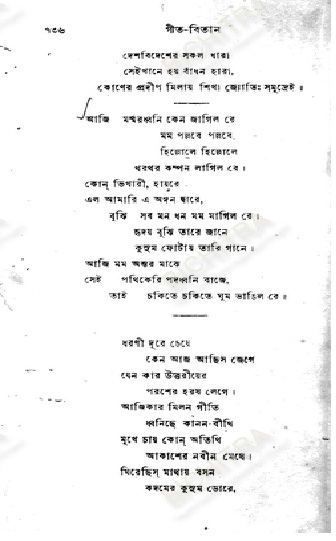 ৭৩৬ গীত-বিতান
দেশবিদেশের সকল ধারা
সেইখানে হয় বাঁধন হারা,
কোণের প্রদীপ মিলায় শিখা জ্যোতিঃ সমুদ্রেই ।
আজি মর্ম্মরধ্বনি কেন জাগিল রে
মম পল্লবে পল্লবে
হিল্লোলে হিল্লোলে
থরথর কম্পন লাগিল রে ।
কোন্ ভিখারী, হায়রে
এল আমারি এ অঙ্গন দ্বারে,
বুঝি সব মন ধন মম মাগিল রে ।
হৃদয় বুঝি তারে জানে
কুসুম ফোটায় তারি গানে ।
আজি মম অন্তর মাঝে
সেই পথিকেরি পদধ্বনি বাজে,
তাই চকিতে চকিতে ঘুম ভাঙিল রে ।
ধরণী দূরে চেয়ে
কেন আজ আছিস জেগে
যেন কার উত্তরীয়ের
পরশের হরষ লেগে ।
আজিকার মিলন গীতি
ধ্বনিছে কানন-বীথি
মুখে চায় কোন্ অতিথি
আকাশের নবীন মেঘে ।
ঘিরেছিস্ মাথায় বসন
কদমের কুসুম ডোরে,